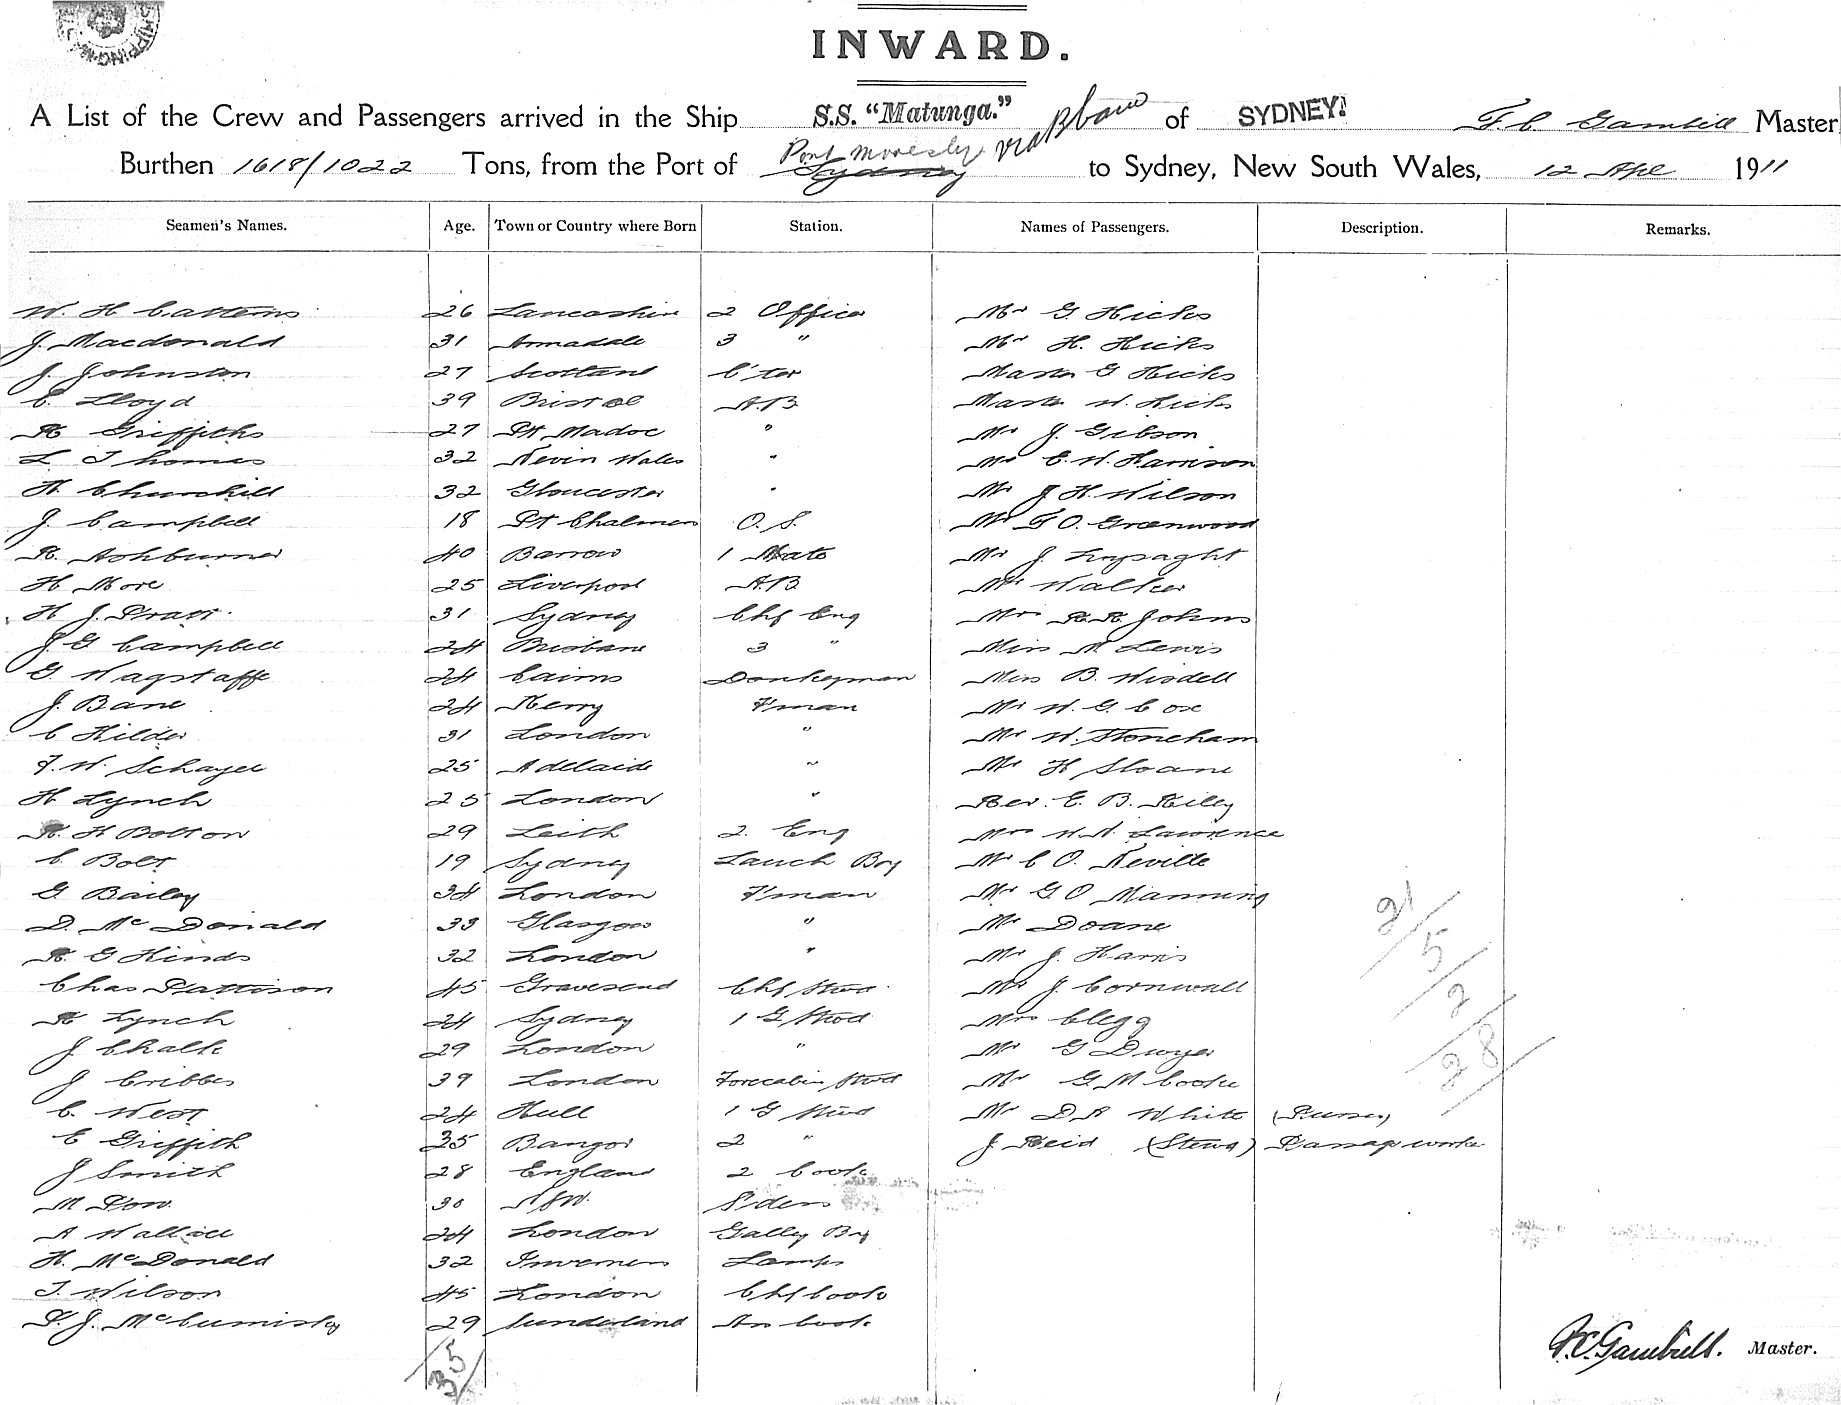 INWARD.
A List of the Crew and Passengers arrived in the Ship S.S. "Matunga." via Bbane of SYDNEY. Master
Burthen 1618/1022 Tons, from the Port of Port Moresby Sydney to Sydney, New South Wales, 12 Apl 1911
Seamen's Names. Age. Town or Country where Born Station. Names of Passengers. Description. Remarks.
W. H. 26 Lancashire 2 Officer Mr G Hicks
J. Macdonald 31 Armadale 3 " Mr H. Hicks
J Johnston 27 Scotland C'ter Master G Hicks
C. Lloyd 39 Bristol A.B. Master W. Hicks
R Griffiths 27 Pt Madoc " Mr J. Gibson
L Thomas 32 Nevin Wales " Mr C. W. Harrison
H. Churchill 32 Gloucester " Mr J H Wilson
J. Campbell 18 Pt Chalmers O.S. Mr F O. Greenwood
R. Ashburner 40 Barrow 1 Mate Mr J. Lysaght
H More 25 Liverpool A.B. Walker
H J. Pratt. 31 Sydney Chf Eng R. R. Johns
J G Campbell 24 Brisbane 3 " Miss N Lewis
G. Wagstaffe 24 Cairns Donkeyman Miss B. Wisdell
J. Bane 24 Kerry F'man Mr W. G. Cox
C Hilder 31 London " Mr W. Stoneham
F. W. 25 Adelaide " Mr H Sloane
H Lynch 25 London " Rev. E. B. Riley
R. H Bolton 29 Leith 2. Eng Mrs W. N. Lawrence
C. Bolt 19 Sydney Lauch Boy Mr C O. Neville
G Bailey 34 London F'man Mr G O Manning
D. McDonald 33 Glasgow " Mr Doane
R G Hinds 32 London " Mr J. Harris
Chas Pattison 45 Gravesend Chf Stwd. Mr J. Cornwall
R Lynch 24 Sydney 1 G Stwd Mrs Clegg
J Chalk 29 London " Mr G Dwyer
J Cribbes 39 London Forecabin Stwd Mr G M Cooke
C. West 24 Hull 1 G Stwd Mr D R White (Purser)
C Griffith 35 Bangor 2 " J Reid (Stewd) Passage worker
J Smith 28 England 2 Cook
M Dow. 30 NSW.
A Wallace 24 London Gally Boy
H. McDonald 32 Inverness Lamps
T. Wilson 45 London Chf Cook
J. 29 Sunderland Ass Cook
21/5/2/28
35
F.C. Gambrill. Master.